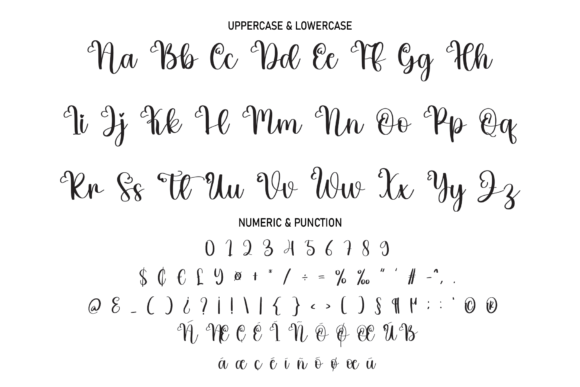 UPPERCASE & LOWERCASE
Aa Bb Cc Dd Ee Ff Gg Hh
Ii Jj Kk Ll Mm Nn Oo Pp Qq
Rr Ss Tt Uu Vv Ww Xx Yy Zz
NUMERIC & PUNCTION
0 1 2 3 4 5 6 7 8 9
$ ₵ € £ Y ø + * / ÷ = % ‰ " ' # - ^ , .
@ & _ ( ) ¿ ? ¡ ! \ | { } < > ( ) § ¶ : ; ' © ®
Ñ Æ Ñ Õ Ø Œ Ü ß
æ ø œ ü